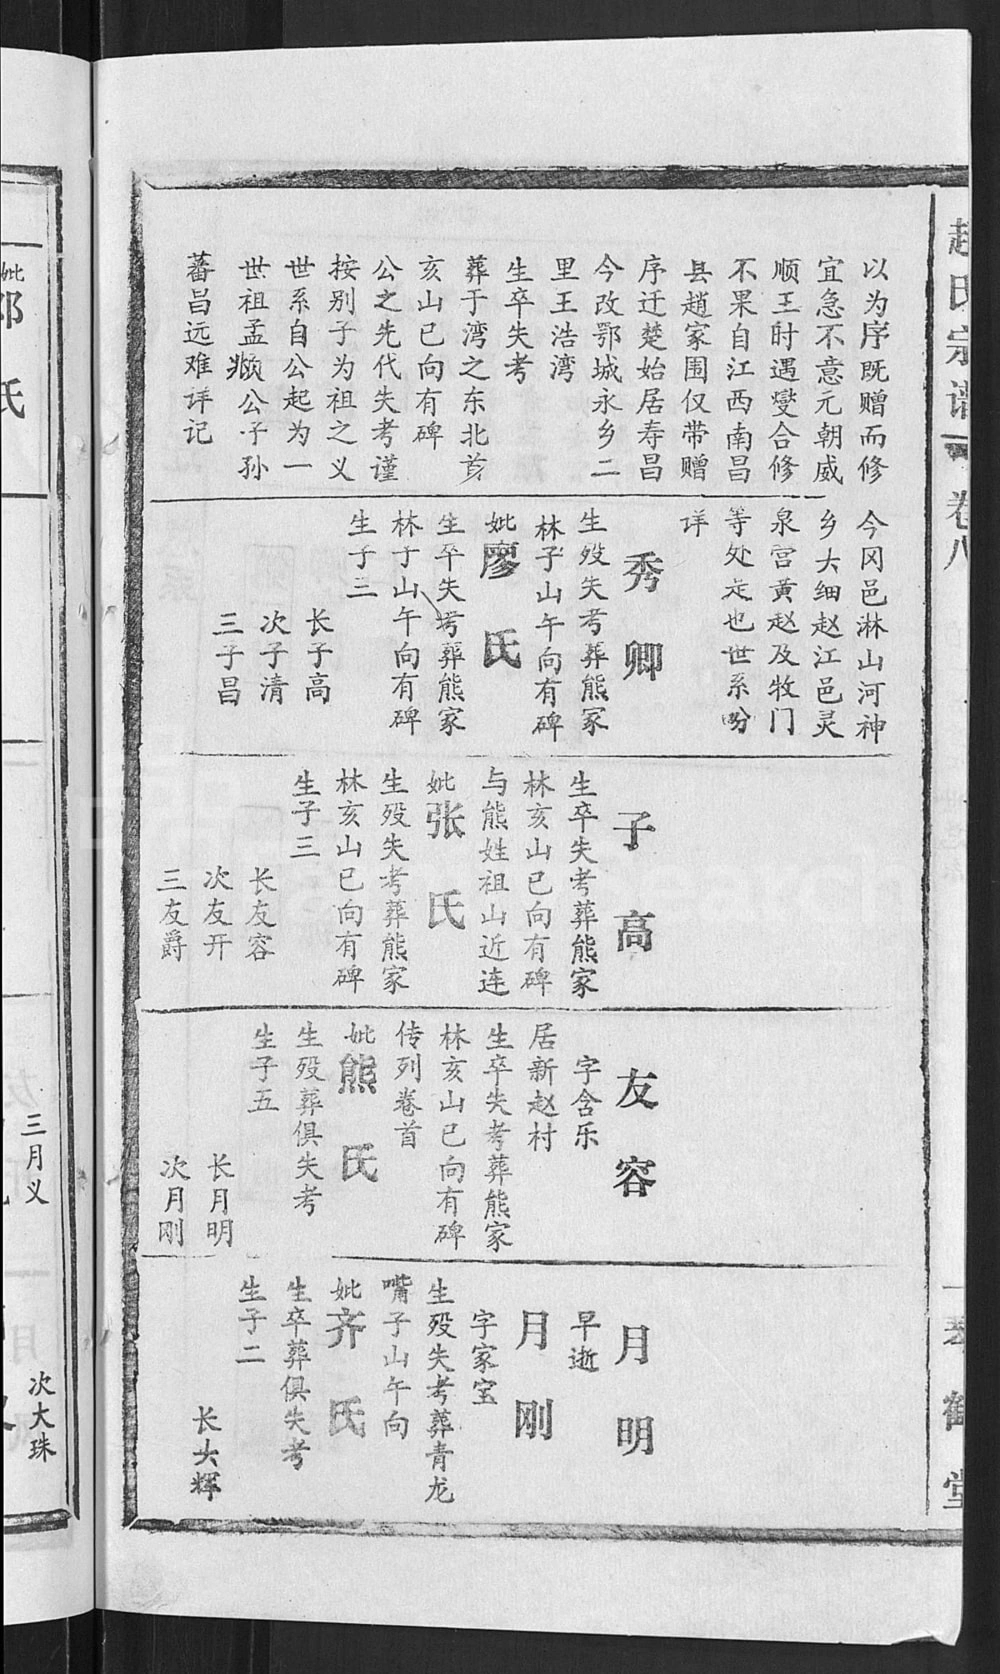 赵氏宗谱
卷八
一琴鹤堂
以为序既赠而修
宜急不意元朝威
顺王时遇燮合修
不果自江西南昌
县趙家围仅带赠
序迁楚始居寿昌
今改鄂城永乡二
里王浩湾
生卒失考
葬于湾之东北首
亥山巳向有碑
公之先代失考谨
按别子为祖之义
世系自公起为一
世祖孟𬱖公子孙
蕃昌远难详记
今冈邑淋山河神
乡大细赵江邑灵
泉宫黄赵及牧门
等处是也世系吩
详
秀卿
生殁失考葬熊家
林子山午向有碑
妣廖氏
生卒失考葬熊家
林子山午向有碑
生子三
长子高
次子清
三子昌
子高
生卒失考葬熊家
林亥山巳向有碑
与熊姓祖山近连
妣张氏
生殁失考葬熊家
林亥山巳向有碑
生子三
长友容
次友开
三友爵
友容
字含乐
居新赵村
生卒失考葬熊家
林亥山巳向有碑
传列卷首
妣熊氏
生殁葬俱失考
生子五
长月明
次月刚
月明
早逝
月刚
字家宝
生殁失考葬青龙
嘴子山午向
妣齐氏
生卒葬俱失考
生子二
长大辉
三月义
次大珠
妣邓氏